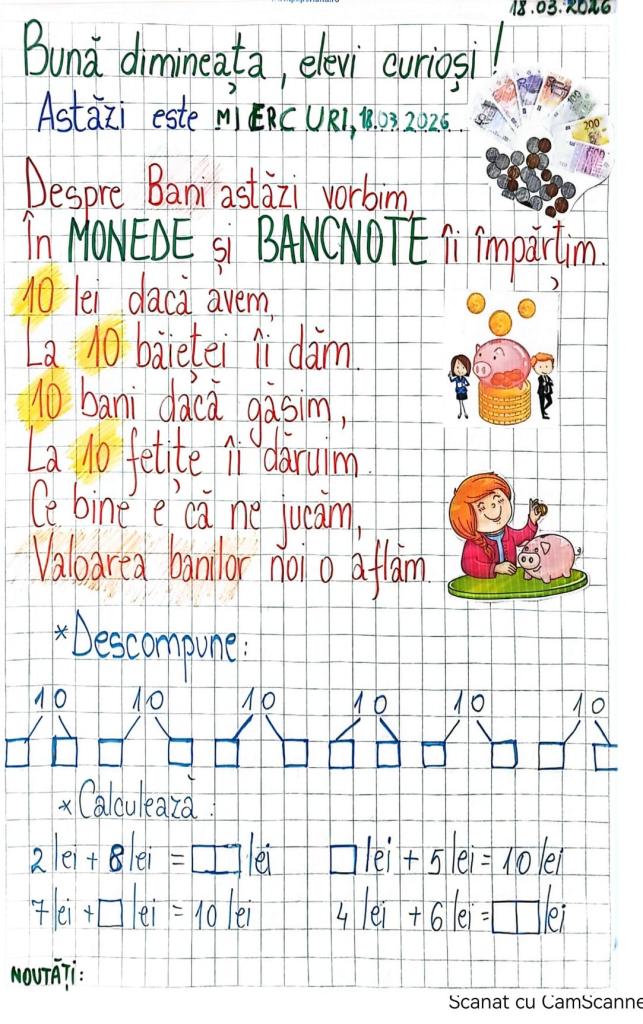 18.03.2026
Bună dimineața, elevi curioși!
Astăzi este MIERCURI, 18.03.2026.
Despre Bani astăzi vorbim,
În MONEDE și BANCNOTE îi împărțim.
10 lei dacă avem,
La 10 băieței îi dăm.
10 bani dacă găsim,
La 10 fetițe îi dăruim.
Ce bine e că ne jucăm,
Valoarea banilor noi o aflăm.
*Descompune:
10 10 10 10 10 10
*Calculează:
2 lei + 8 lei = lei lei + 5 lei = 10 lei
7 lei + lei = 10 lei 4 lei + 6 lei = lei
NOUTĂȚI:
Scanat cu CamScanne